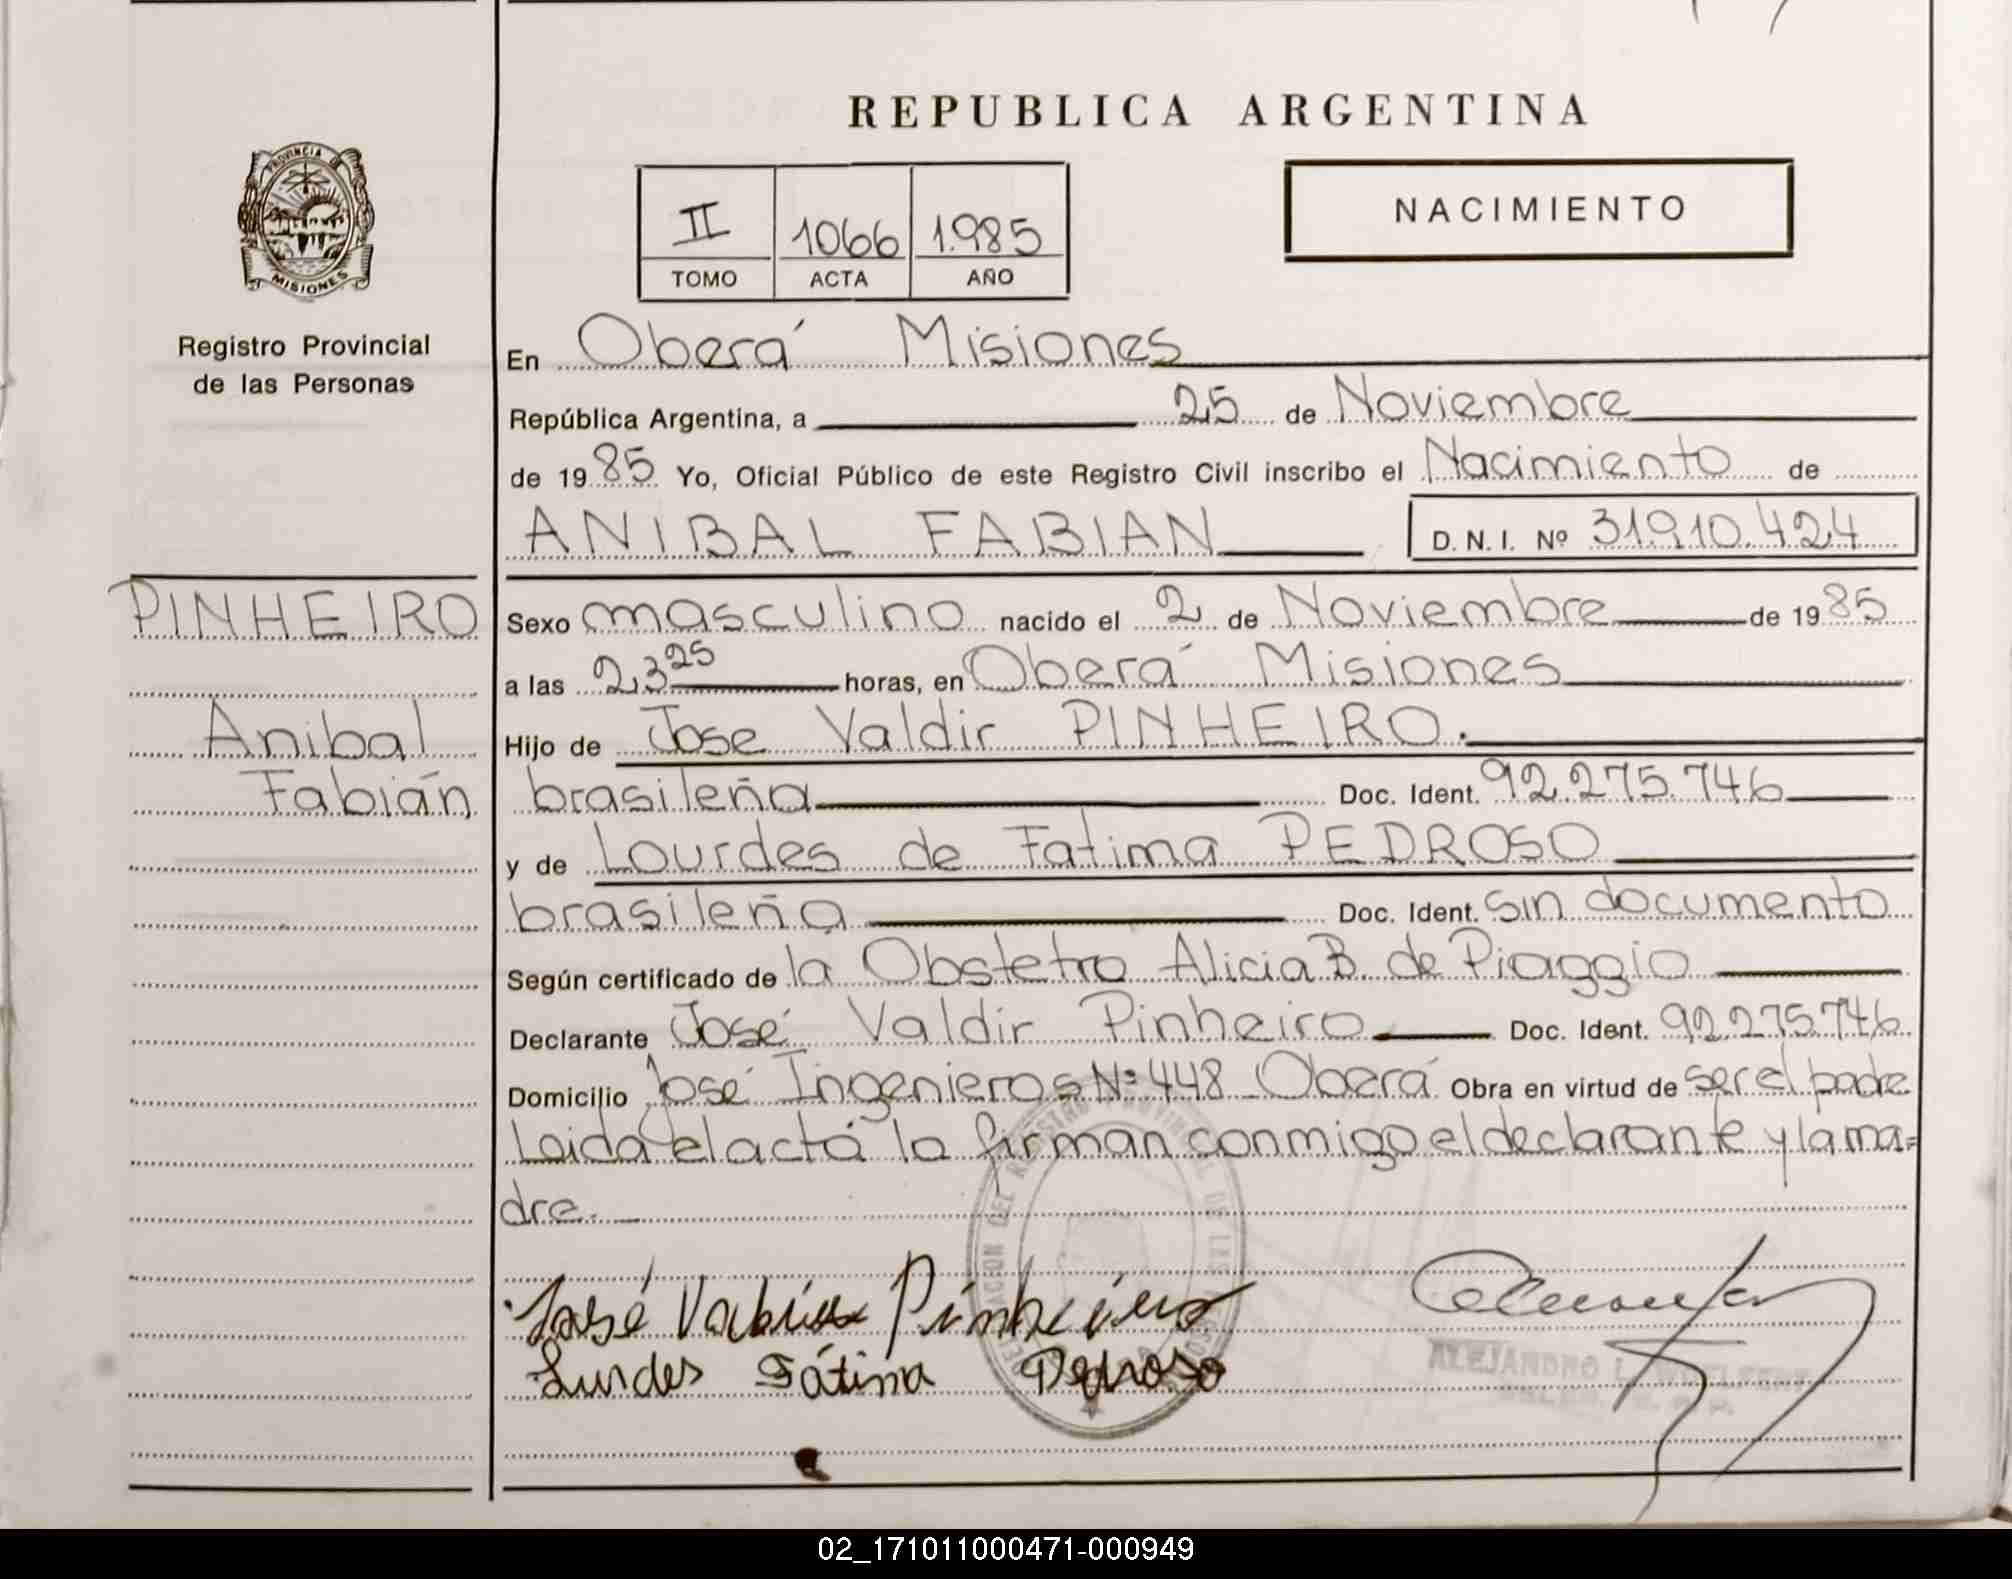 REPUBLICA ARGENTINA
PROVINCIA DE
MISIONES
Registro Provincial
de las Personas
II 1066 1.985
TOMO ACTA AÑO
NACIMIENTO
En Oberá Misiones
República Argentina, a 25 de Noviembre
de 1985 Yo, Oficial Público de este Registro Civil inscribo el Nacimiento de
ANIBAL FABIAN D.N.I. Nº 31.910.424
PINHEIRO
Anibal
Fabián
Sexo masculino nacido el 2 de Noviembre de 1985
a las 23 25 horas, en Oberá Misiones
Hijo de Jose Valdir PINHEIRO.
brasileña Doc. Ident. 92.275.746
y de Lourdes de Fatima PEDROSO
brasileña Doc. Ident. sin documento
Según certificado de la Obstetra Alicia B. de Piaggio
Declarante José Valdir Pinheiro Doc. Ident. 92.275.746
Domicilio José Ingenieros Nº 448 Oberá Obra en virtud de ser el padre
Laida el acta la firman conmigo el declarante y la ma=
dre.
José Pinheiro
Lurdes Fátima Pedroso
ALEJANDRO L.
02_171011000471-000949